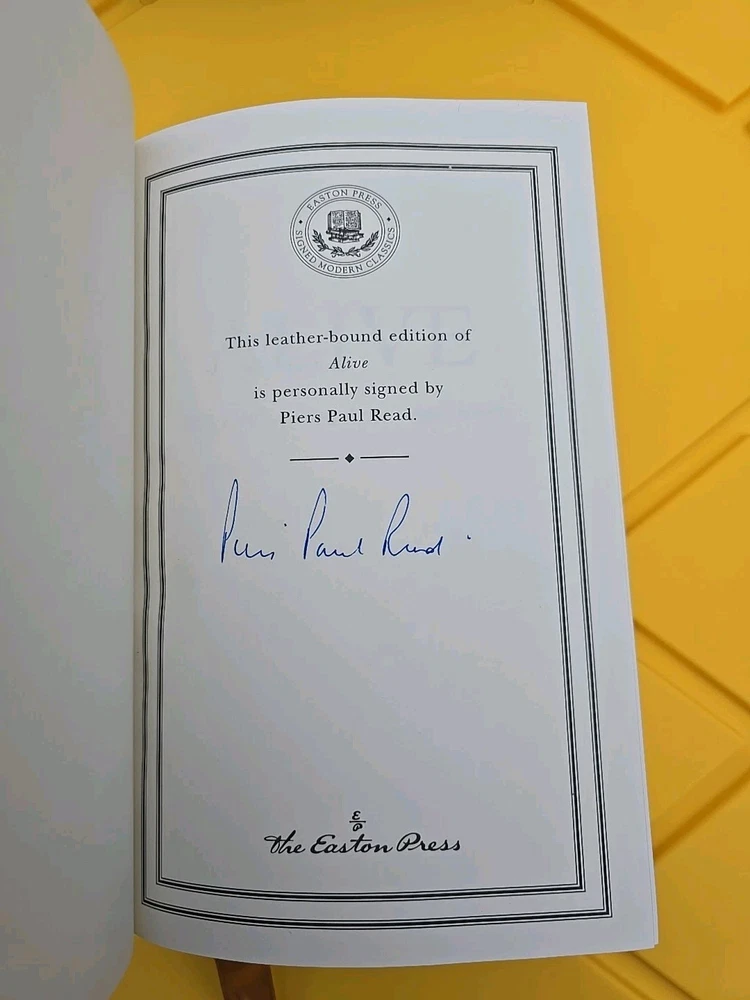 EASTON PRESS
SIGNED MODERN CLASSICS
This leather-bound edition of
Alive
is personally signed by
Piers Paul Read.
Piers Paul Read
E
P
the Easton Press